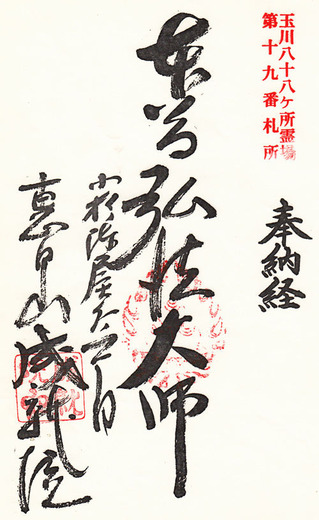 玉川八十八ヶ所霊場
第十九番札所
奉納経
本尊弘法大師
小杉陣屋
成就院